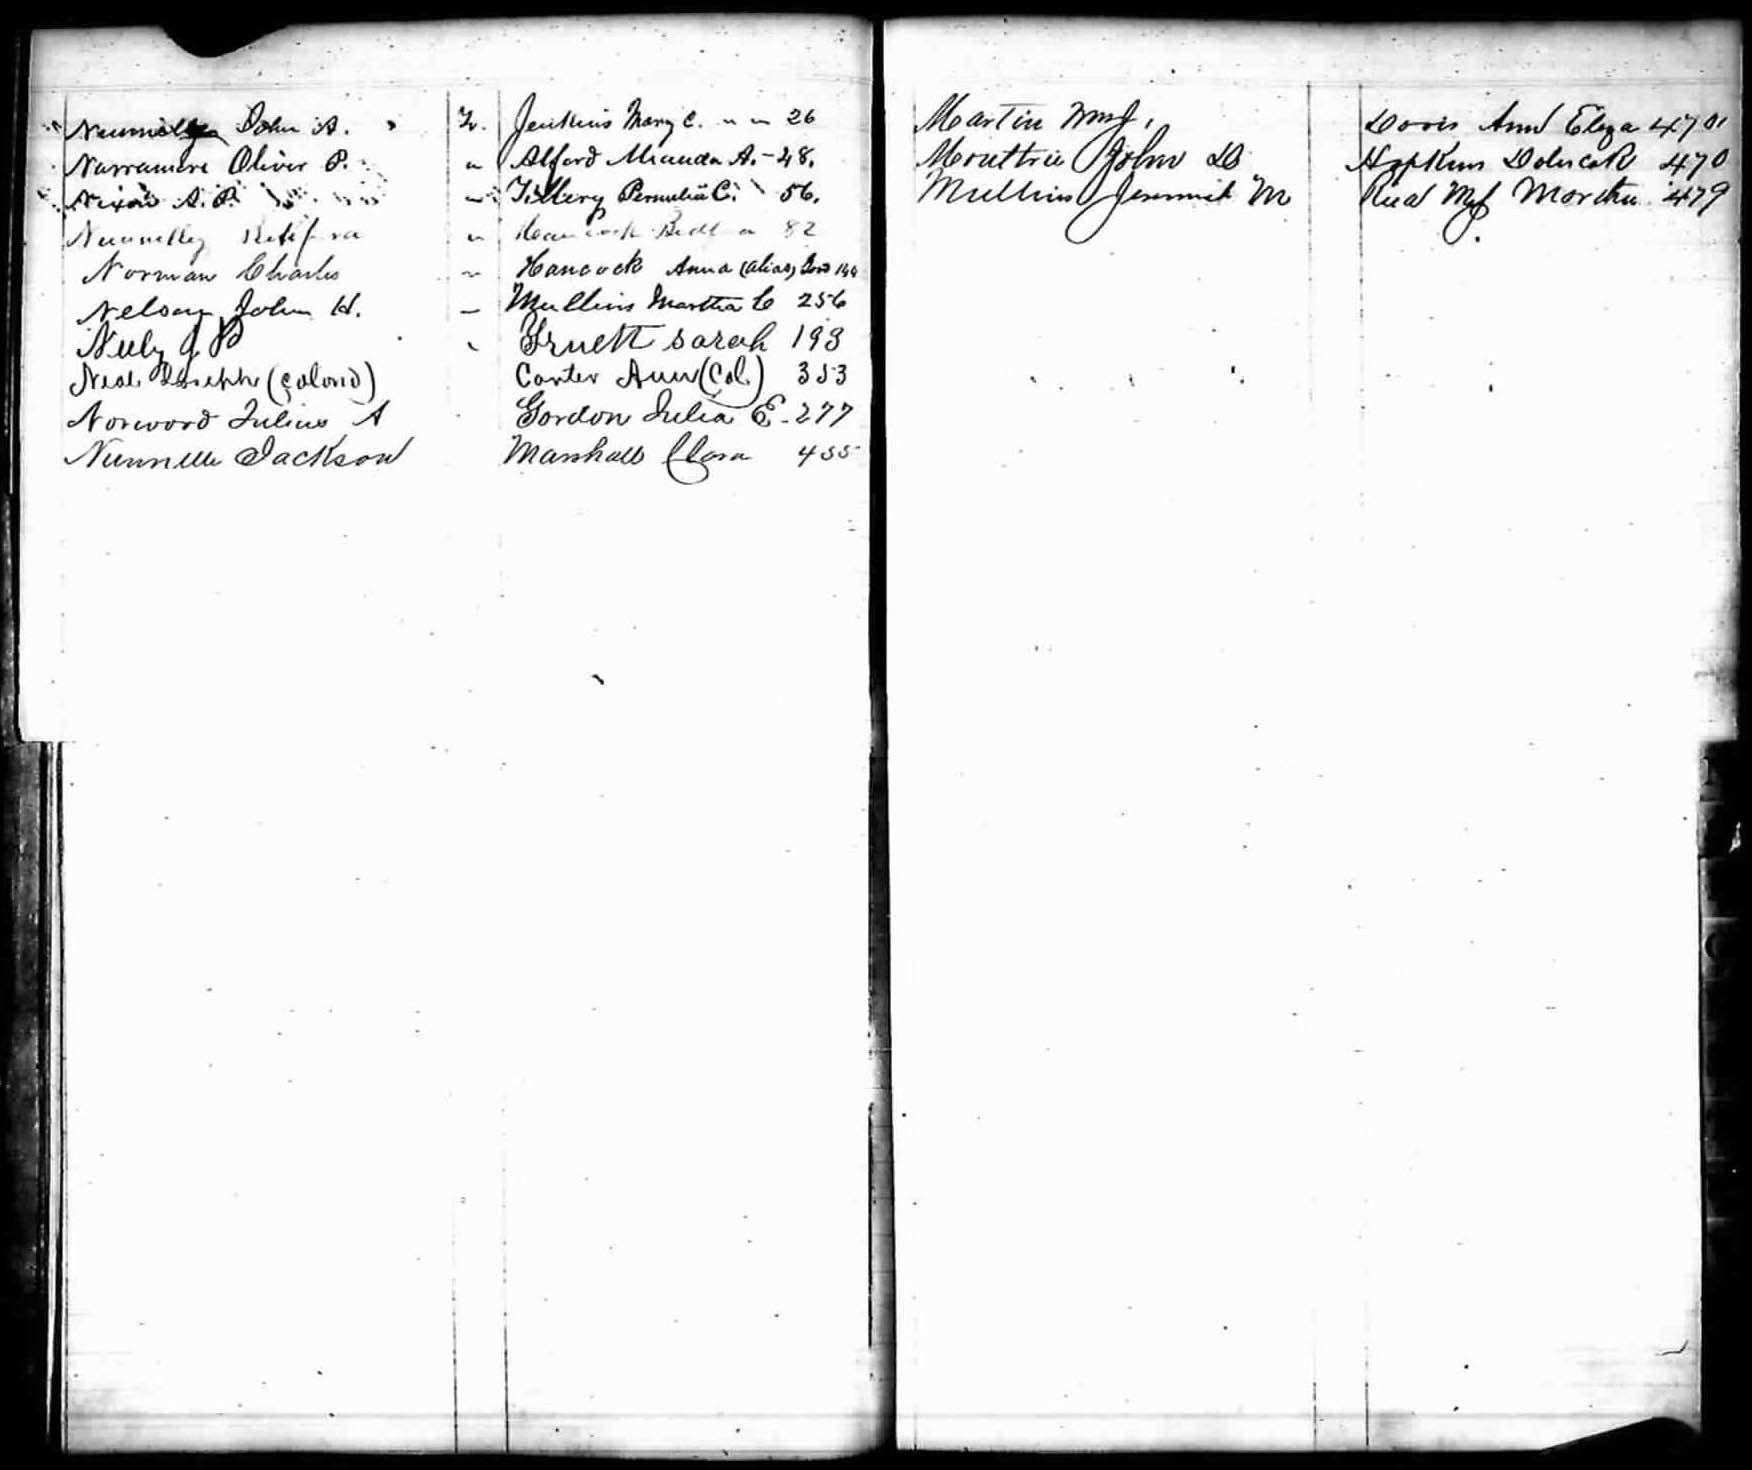 Nunnelly John A. To. Jenkins Mary C. " " 26
Narramore Oliver P. " Alford Miranda A. - 48.
Nixon A. P. " Tillery Permelia C. 56.
Nunnelley " Hancock 82
Norman Charles " Hancock Anna (alias)
Nelson John H. " Mullins Martha C 256
Neely J P " Truett Sarah 193
Neal Joseph (Colord) Carter Ann (Col.) 353
Norwood Julius A Gordon Julia E - 277
Nunnelle Jackson Marshall Clara 455
Martin Wm J. Davis Ann Eliza 470
Mouttrie John D Hopkins 470
Mullins M Reid Martha 479